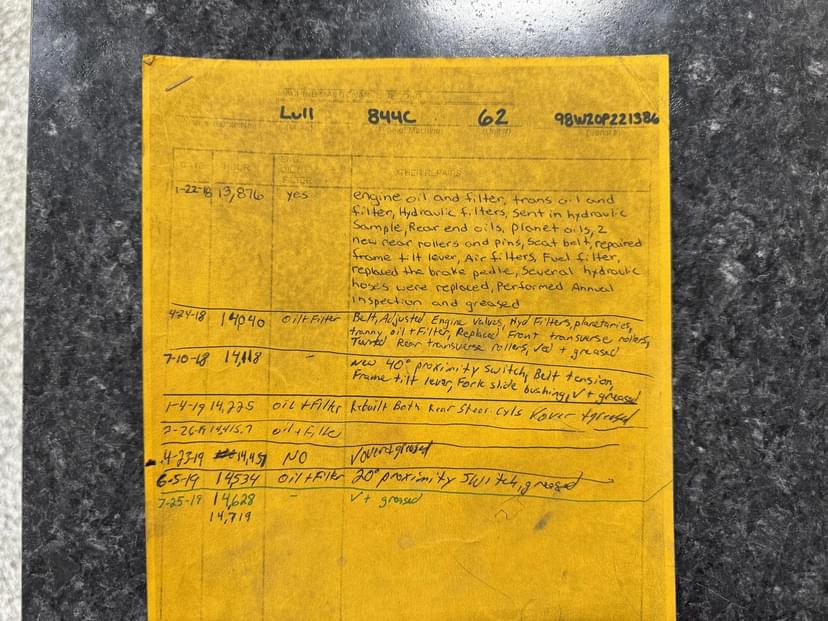 Lull 844C 62 98W20P221386
DATE HOUR OTHER REPAIRS
1-22-18 13,876 yes engine oil and filter, trans oil and
filter, Hydraulic filters, sent in hydraulic
Sample, Rear end oils, planet oils, 2
new rear rollers and pins, Seat belt, repaired
frame tilt lever, Air filters, Fuel filter,
replaced the brake pedle, Several hydraulic
hoses were replaced, Performed Annual
Inspection and greased
4-24-18 14040 oil+Filter Belt, Adjusted Engine Valves, Hyd Filters, planetaries,
tranny oil + Filter, Replaced Front transverse rollers,
Turned Rear transverse rollers, + greased
7-10-18 14,118 - New 40° proximity switch, Belt tension,
Frame tilt lever, Fork slide bushing, √ + greased
1-4-19 14,225 oil + Filter Rebuilt Both Rear Stear Cyls √over + greased
2-26-19 14,415.7 oil + Filter
4-23-19 14,451 NO √over+greased
6-5-19 14534 oil + Filter 20° proximity Switch, greased
7-25-19 14,628 - √ + greased
14,719